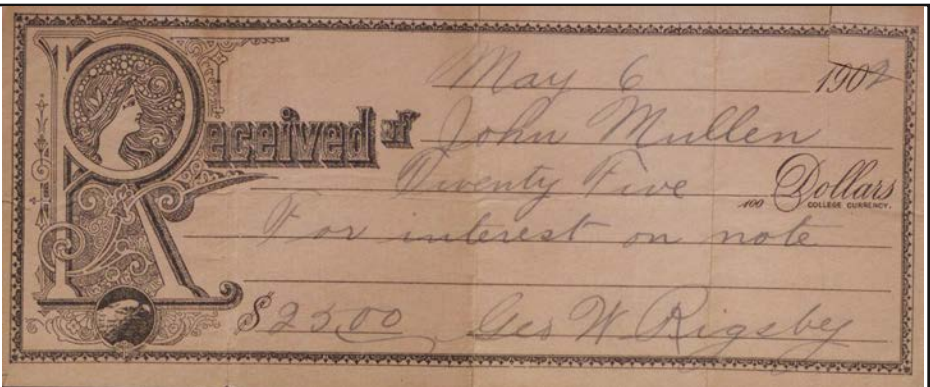 May 6 1902
Received of John Mullen
Twenty Five 100 Dollars
COLLEGE CURRENCY.
For interest on note
$25.00 Geo W Rigsby